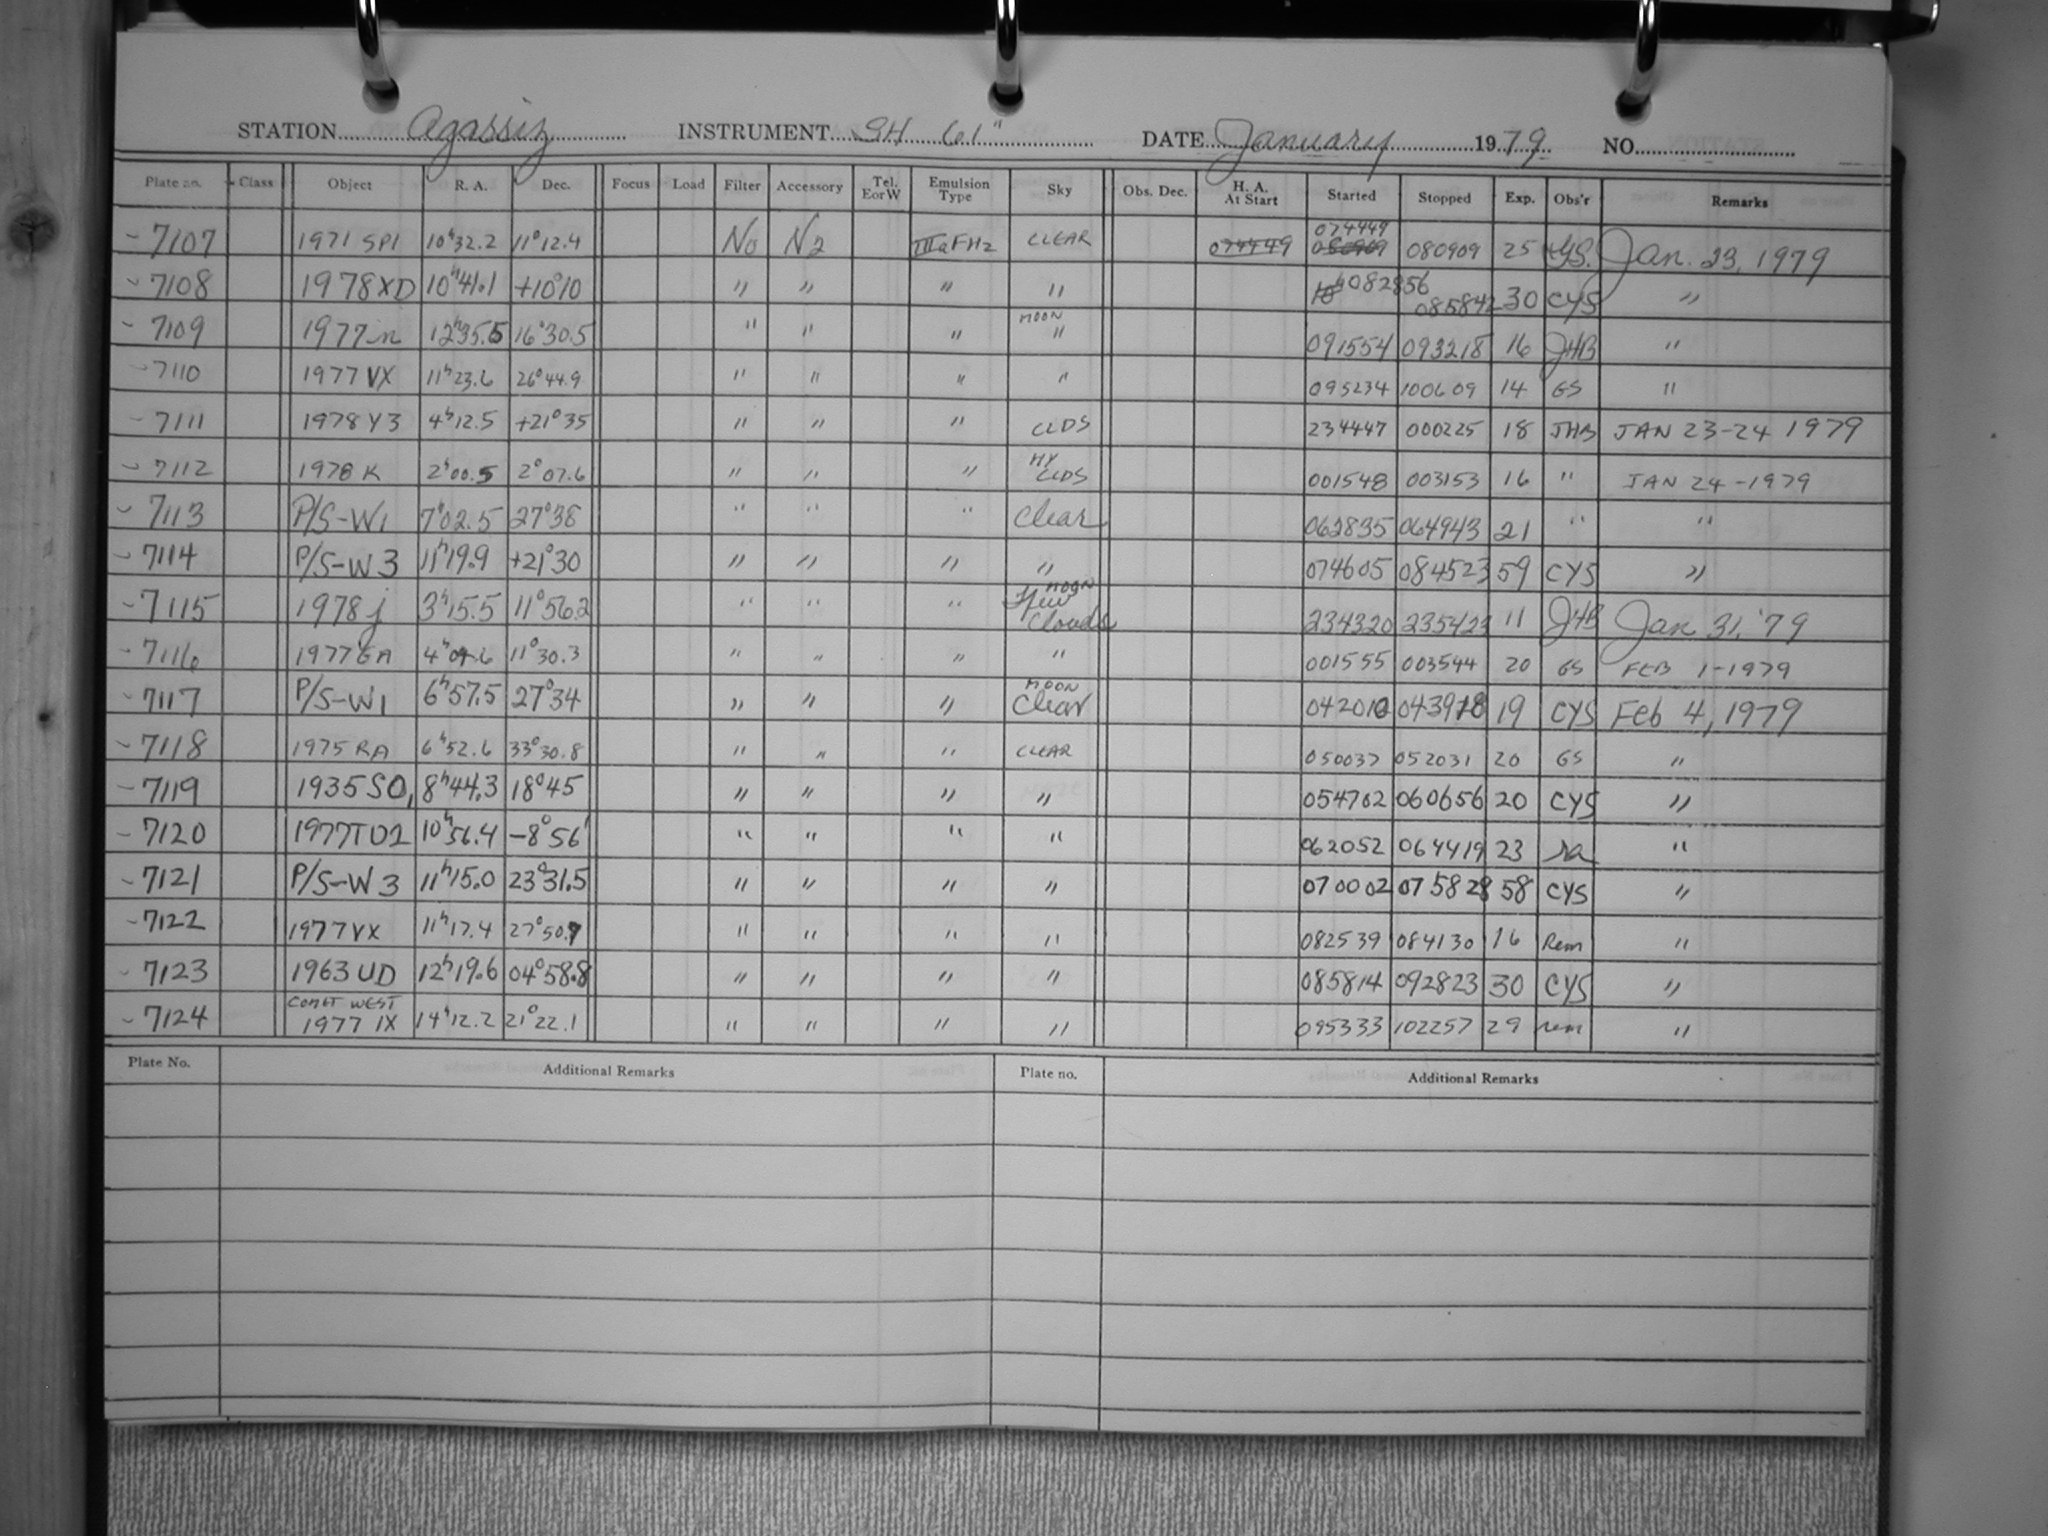 STATION Agassiz INSTRUMENT SH 61" DATE January 1979 NO.
Plate no. Class Object R. A. Dec. Focus Load Filter Accessory Tel. E or W Emulsion Type Sky Obs. Dec. H. A. At Start Started Stopped Exp. Obs'r Remarks
- 7107 1971 SP1 10h32.2 11°12.4 No N2 IIIaFH2 CLEAR 074449 074449 080909 080909 25 GS. Jan. 23, 1979
- 7108 1978XD 10h41.1 +10°10 " " " " 082856 085842 30 CYS "
- 7109 1977m 12h35.5 16°30.5 " " " MOON " 091554 093218 16 JHB "
- 7110 1977 VX 11h23.6 26°44.9 " " " " 095234 100609 14 GS "
- 7111 1978 Y3 4h12.5 +21°35 " " " CLDS 234447 000225 18 JHB JAN 23-24 1979
- 7112 1978 K 2h00.5 2°07.6 " " " HY CLDS 001548 003153 16 " JAN 24-1979
- 7113 P/S-W1 7h02.5 27°38 " " " Clear 062835 064943 21 " "
- 7114 P/S-W3 11h19.9 +21°30 " " " " 074605 084523 59 CYS "
- 7115 1978j 3h15.5 11°56.2 " " " MOON Few Clouds 234320 235423 11 JHB Jan 31, '79
- 7116 1977 EA 4h09.6 11°30.3 " " " " 001555 003544 20 GS FEB 1-1979
- 7117 P/S-W1 6h57.5 27°34 " " " MOON Clear 042010 043918 19 CYS Feb 4, 1979
- 7118 1975 RA 6h52.6 33°30.8 " " " CLEAR 050037 052031 20 GS "
- 7119 1935 SO1 8h44.3 18°45 " " " " 054702 060656 20 CYS "
- 7120 1977TU2 10h56.4 -8°56' " " " " 062052 064419 23 ra "
- 7121 P/S-W3 11h15.0 23°31.5 " " " " 070002 075828 58 CYS "
- 7122 1977 VX 11h17.4 27°50.7 " " " " 082539 084130 16 Rem "
- 7123 1963 UD 12h19.6 04°58.8 " " " " 085814 092823 30 CYS "
- 7124 COMET WEST 1977 IX 14h12.2 21°22.1 " " " " 095333 102257 29 rem "
Plate No. Additional Remarks Plate no. Additional Remarks